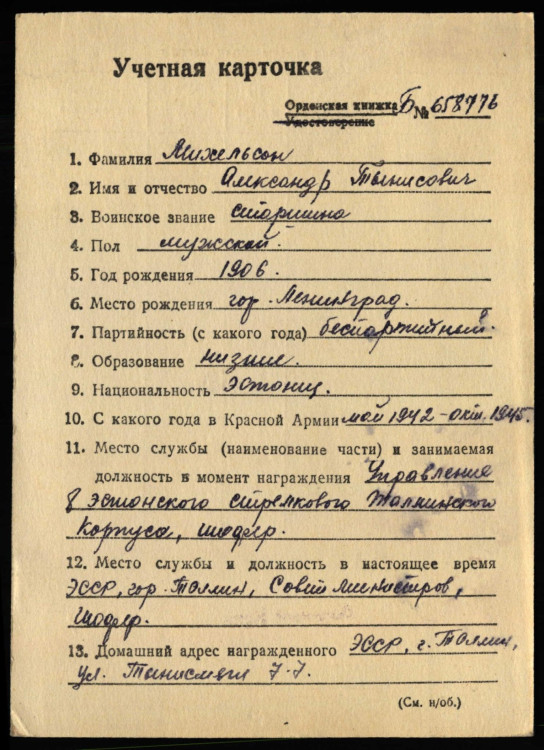 Учетная карточка
Орденская книжка Б № 658776
Удостоверение
1. Фамилия Михельсон
2. Имя и отчество Александр Тынисович
3. Воинское звание старшина
4. Пол мужской.
5. Год рождения 1906.
6. Место рождения гор. Ленинград.
7. Партийность (с какого года) беспартийный.
8. Образование низшее.
9. Национальность эстонец.
10. С какого года в Красной Армии май 1942 – окт. 1945.
11. Место службы (наименование части) и занимаемая
должность в момент награждения Управление
8 эстонского стрелкового Таллинского
Корпуса, шофер.
12. Место службы и должность в настоящее время
ЭССР, гор. Таллин, Совет Министров,
шофер.
13. Домашний адрес награжденного ЭССР, г. Таллин,
ул. Тынисмяги 7-7.
(См. н/об.)